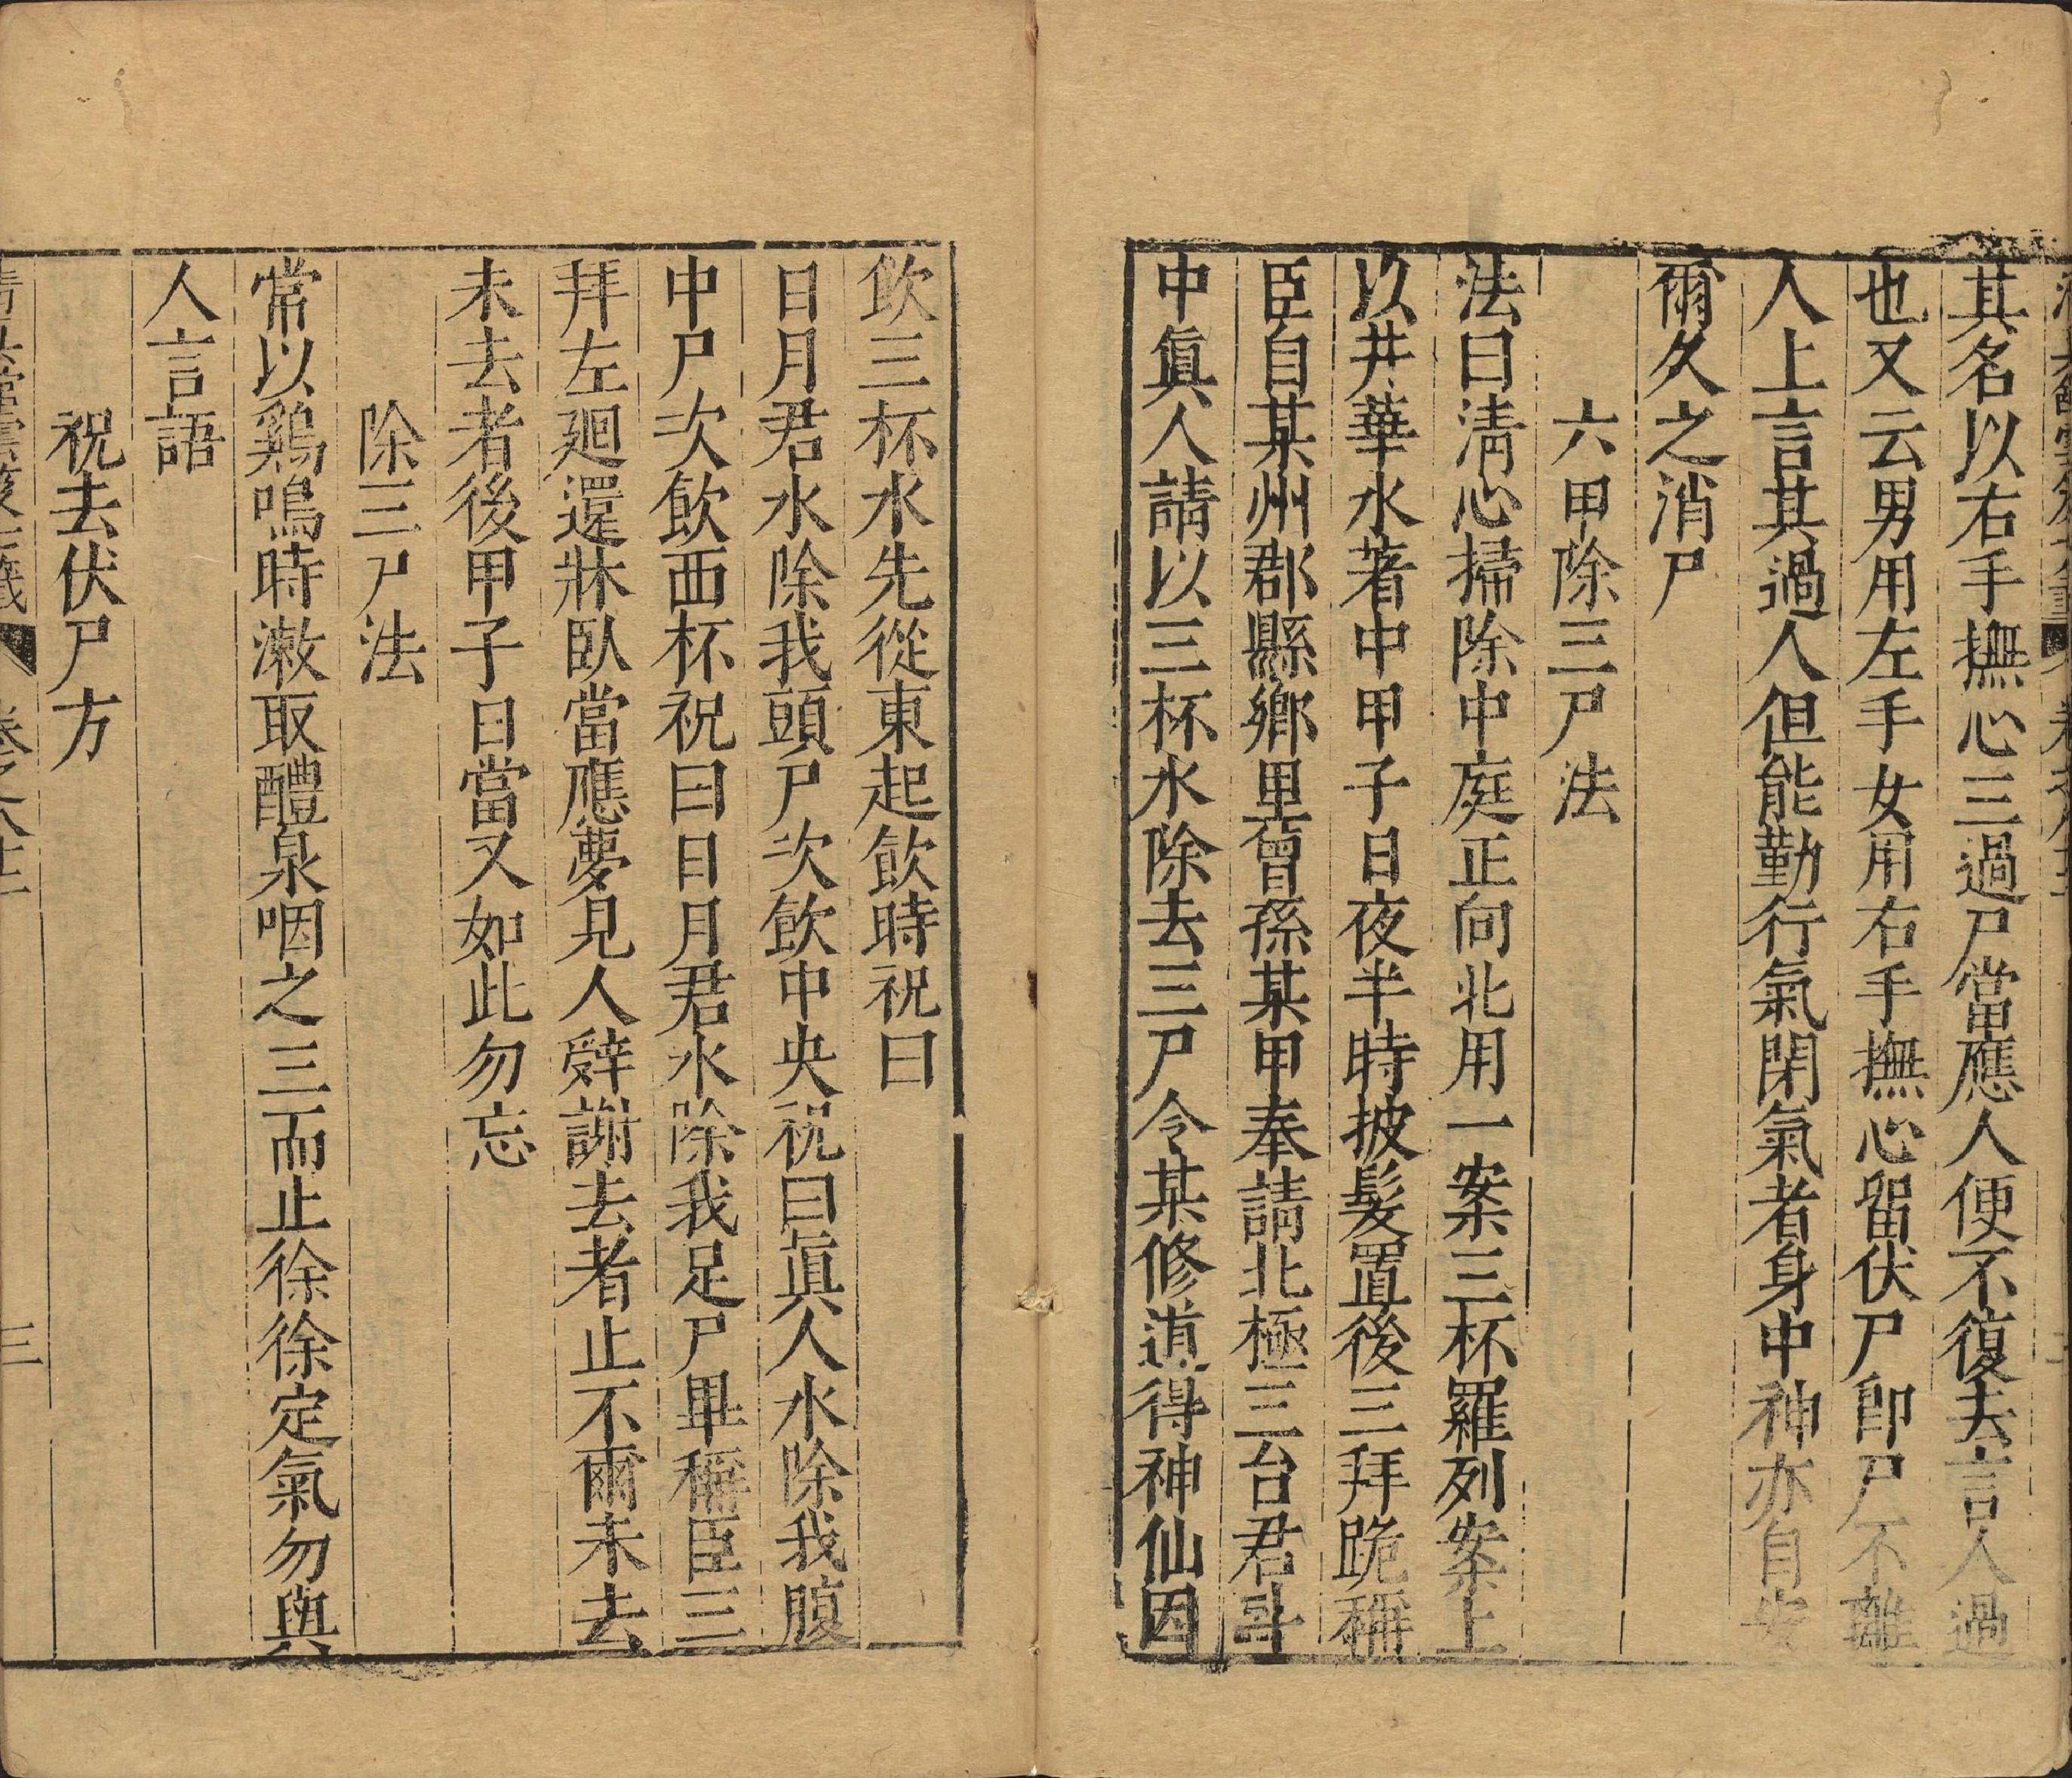 其名以右手撫心三過尸當應人便不復去言人過
也又云男用左手女用右手撫心畱伏尸卽尸不離
人上言其過人但能勤行氣閉氣者身中神亦自安
爾久之消尸
六甲除三尸法
法曰淸心掃除中庭正向北用一案三杯羅列案上
以井華水著中甲子日夜半時披髮置後三拜跪稱
臣自某州郡縣鄉里曾孫某甲奉請北極三台君斗
中眞人請以三杯水除去三尸令某修道得神仙因
飲三杯水先從東起飲時祝曰
日月君水除我頭尸次飲中央祝曰眞人水除我腹
中尸次飲西杯祝曰日月君水除我足尸畢稱臣三
拜左廻還牀臥當應夢見人辤謝去者止不爾未去
未去者後甲子日當又如此勿忘
除三尸法
常以鷄鳴時漱取醴泉咽之三而止徐徐定氣勿與
人言語
祝去伏尸方
三